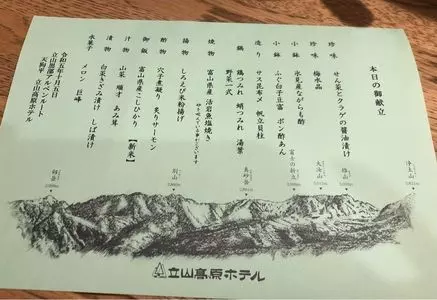 本日の御献立
珍味 せん菜とクラゲの醤油漬け
珍味 梅水晶
小鉢 氷見産ながらも酢
小鉢 ふぐ白子豆富 ポン酢あん
造り サス昆布〆 帆立貝柱
鍋 鶏つみれ 蛸つみれ 湯葉
野菜一式
焼物 富山県産 活岩魚塩焼き
揚物 しろえび米粉揚げ
酢物 穴子煮凝り 炙りサーモン
御飯 富山県産こしひかり【新米】
汁物 山菜 順才 あみ茸
漬物 白菜きざみ漬け しば漬け
水菓子 メロン 巨峰
令和五年十月五日
立山黒部アルペンルート
天狗平 立山高原ホテル
浄土山
雄山
大汝山
富士の折立
真砂岳
別山
立山高原ホテル